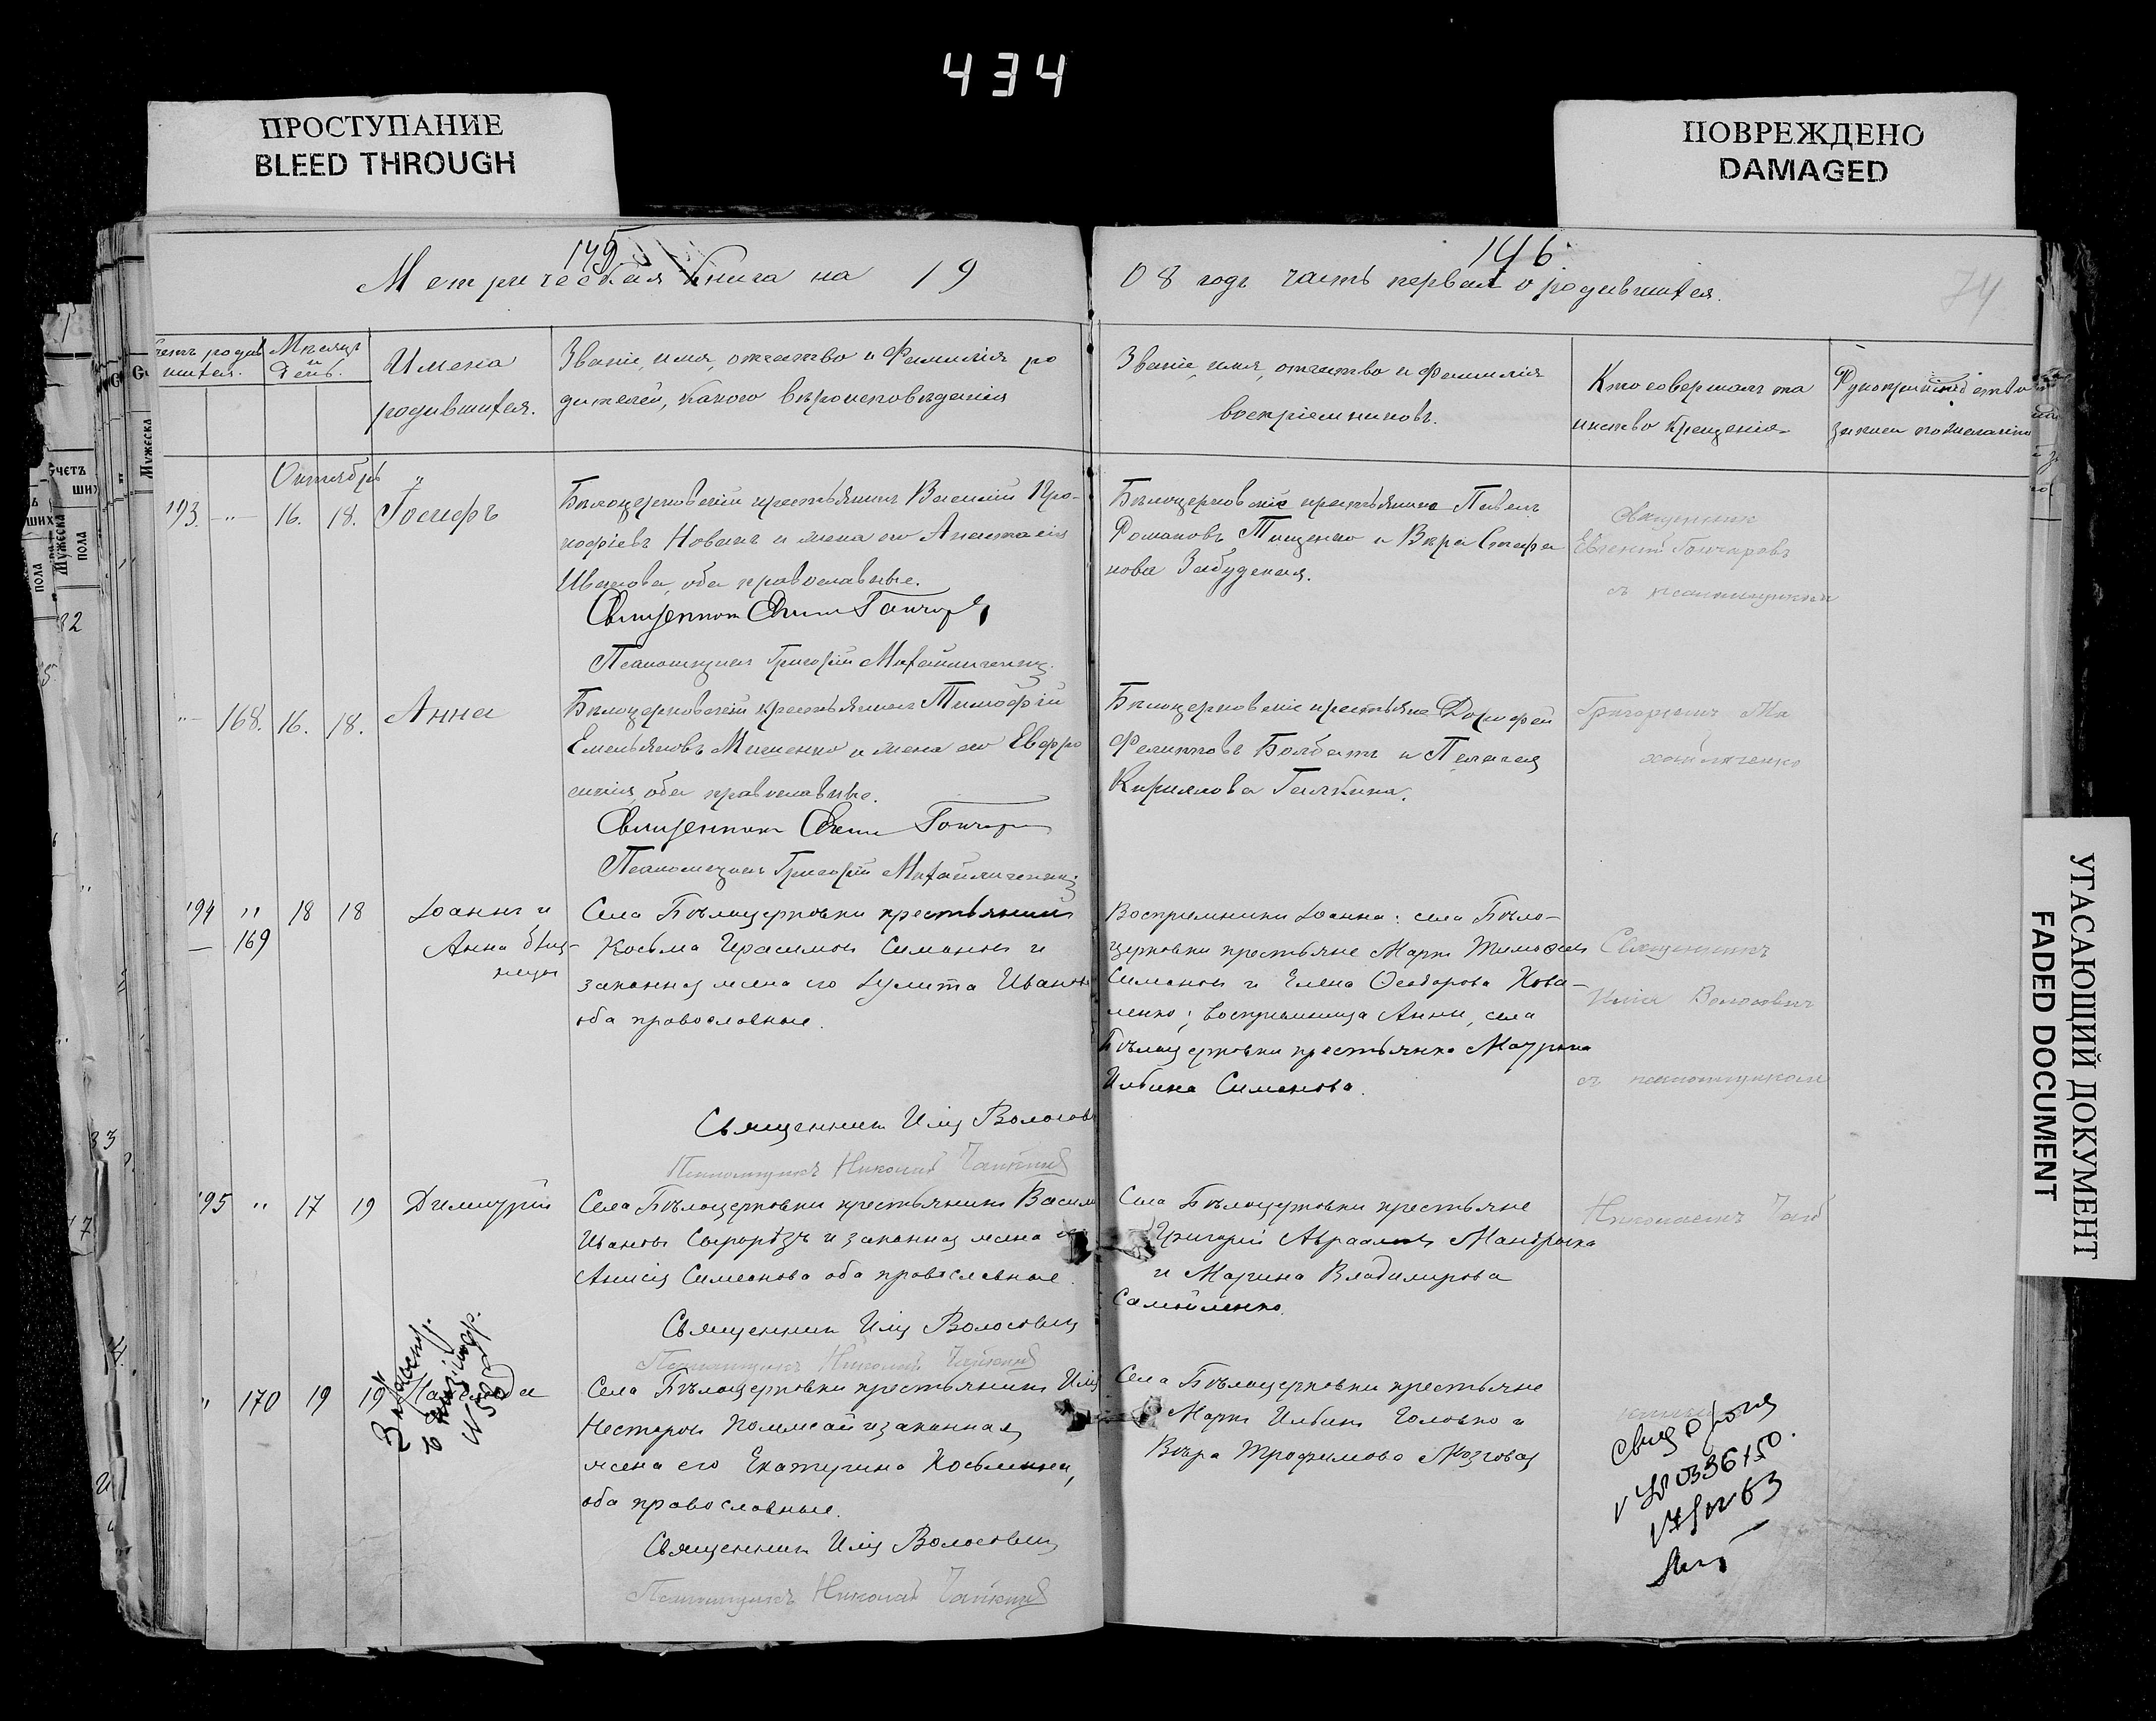 434
ПРОСТУПАНИЕ
BLEED THROUGH
ПОВРЕЖДЕНО
DAMAGED
145
Метрическая книга на 19
146
08 годъ часть первая о родившихся.
74
Мѣсяцъ
и
день.
Имена
родившихся.
Званіе, имя, отчество и фамилія ро
дителей, какого вѣроисповѣданія
Званіе, имя, отчество и фамилія
воспріемниковъ.
Кто совершалъ та
инство крещенія
Октябрь
193. -"- 16. 18. Іосифъ
Бѣлоцерковскій крестьянинъ Василій Про-
кофіевъ Новакъ и жена его Анастасія
Иванова, оба православные.
Священникъ Гончар
Псаломщикъ Григорій Михайличенко
Бѣлоцерковскіе крестьяне Павелъ
Романовъ Тищенко и Вѣра Стефа
нова Забудская.
Священникъ
Евгеній Гончаровъ
съ псаломщикомъ
"- 168. 16. 18. Анна
Бѣлоцерковскій крестьянинъ Тимофей
Емельяновъ Мищенко и жена его Евфро
синія, оба православные.
Священникъ Гончар
Псаломщикъ Григорій Михайличенко
Бѣлоцерковскіе крестьяне Дорофей
Филипповъ Болбатъ и Пелагея
Кириллова Галкина.
Григоріемъ Ми
хайличенко
194 " 18 18 Іоаннъ и
— 169 Анна близ-
нецы
Села Бѣлоцерковки крестьянинъ
Косьма Герасимовъ Симоновъ и
законная жена его Іулитта Иванова
оба православные.
Священникъ Илія Волосов
Псаломщикъ Николай
Воспріемники Іоанна: села Бѣло-
церковки крестьяне Маркъ Тимофеевъ
Симоновъ и Елена Феодорова Кова-
ленко; воспріемница Анны, села
Бѣлоцерковки крестьянка Мавра
Ильина Симонова.
Священникъ
Илія Волосовичъ
съ псаломщикомъ
195 " 17 19 Димитрій
Села Бѣлоцерковки крестьянинъ Васил
Ивановъ Сыророзъ и законная жена его
Анисія Симеонова оба православные.
Священникъ Илія Волосовичъ
Псаломщикъ Николай
Села Бѣлоцерковки крестьяне
Григорій Авраамовъ Мандрыка
и Марина Владимірова
Самойленко.
Николаемъ
" 170 19 19 Надежда
Села Бѣлоцерковки крестьянинъ Илія
Несторовъ и законная
жена его Екатерина Косьмина,
оба православные.
Священникъ Илія Волосовичъ
Псаломщикъ Николай
Села Бѣлоцерковки крестьяне
Маркъ Ильинъ Головко и
Вѣра Трофимова Мозговая
УГАСАЮЩИЙ ДОКУМЕНТ
FADED DOCUMENT